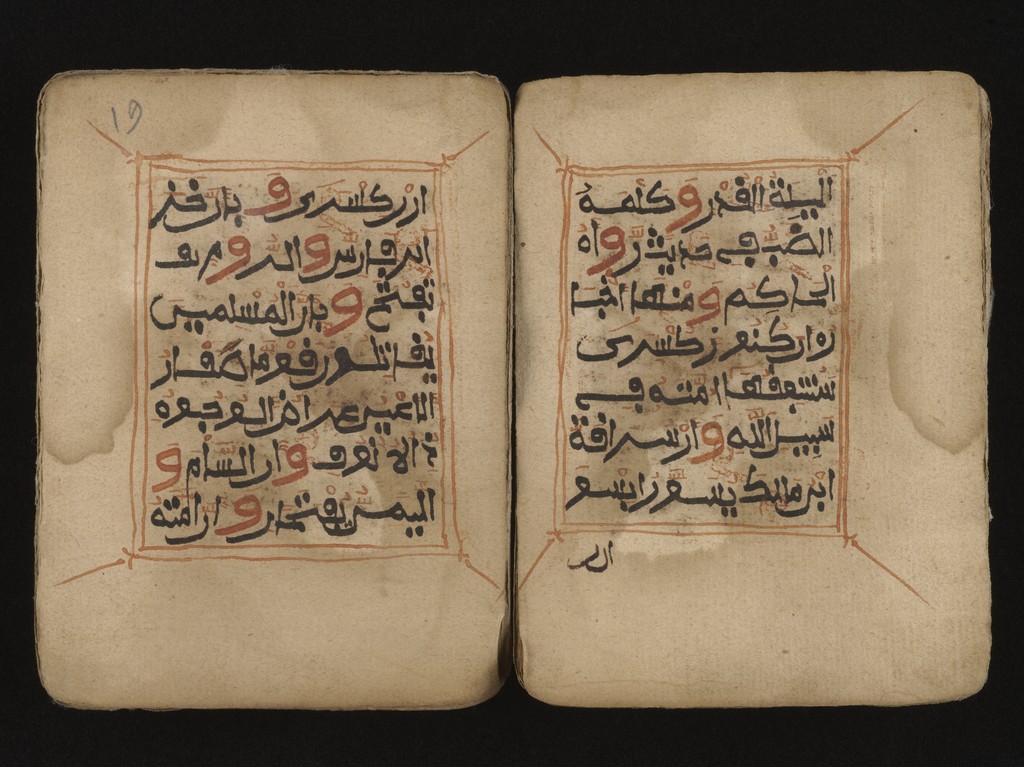 اليلة القدر و كلمه
الضب في حديث رواه
الحاكم و منها اخبا
ره ان كنوز كسرى
ستنفقها امته في
سبيل الله و ان سراقة
ابن مالك يسور بسو
ار
ار كسرى و بان
ابن فارس و الر و م
تفتح و بان المسلمين
يقاتلون قوما صغار
الاعين عراض الوجوه
ذ الا نوف و ان الشام و
اليمن تفتحان و ان امته
19